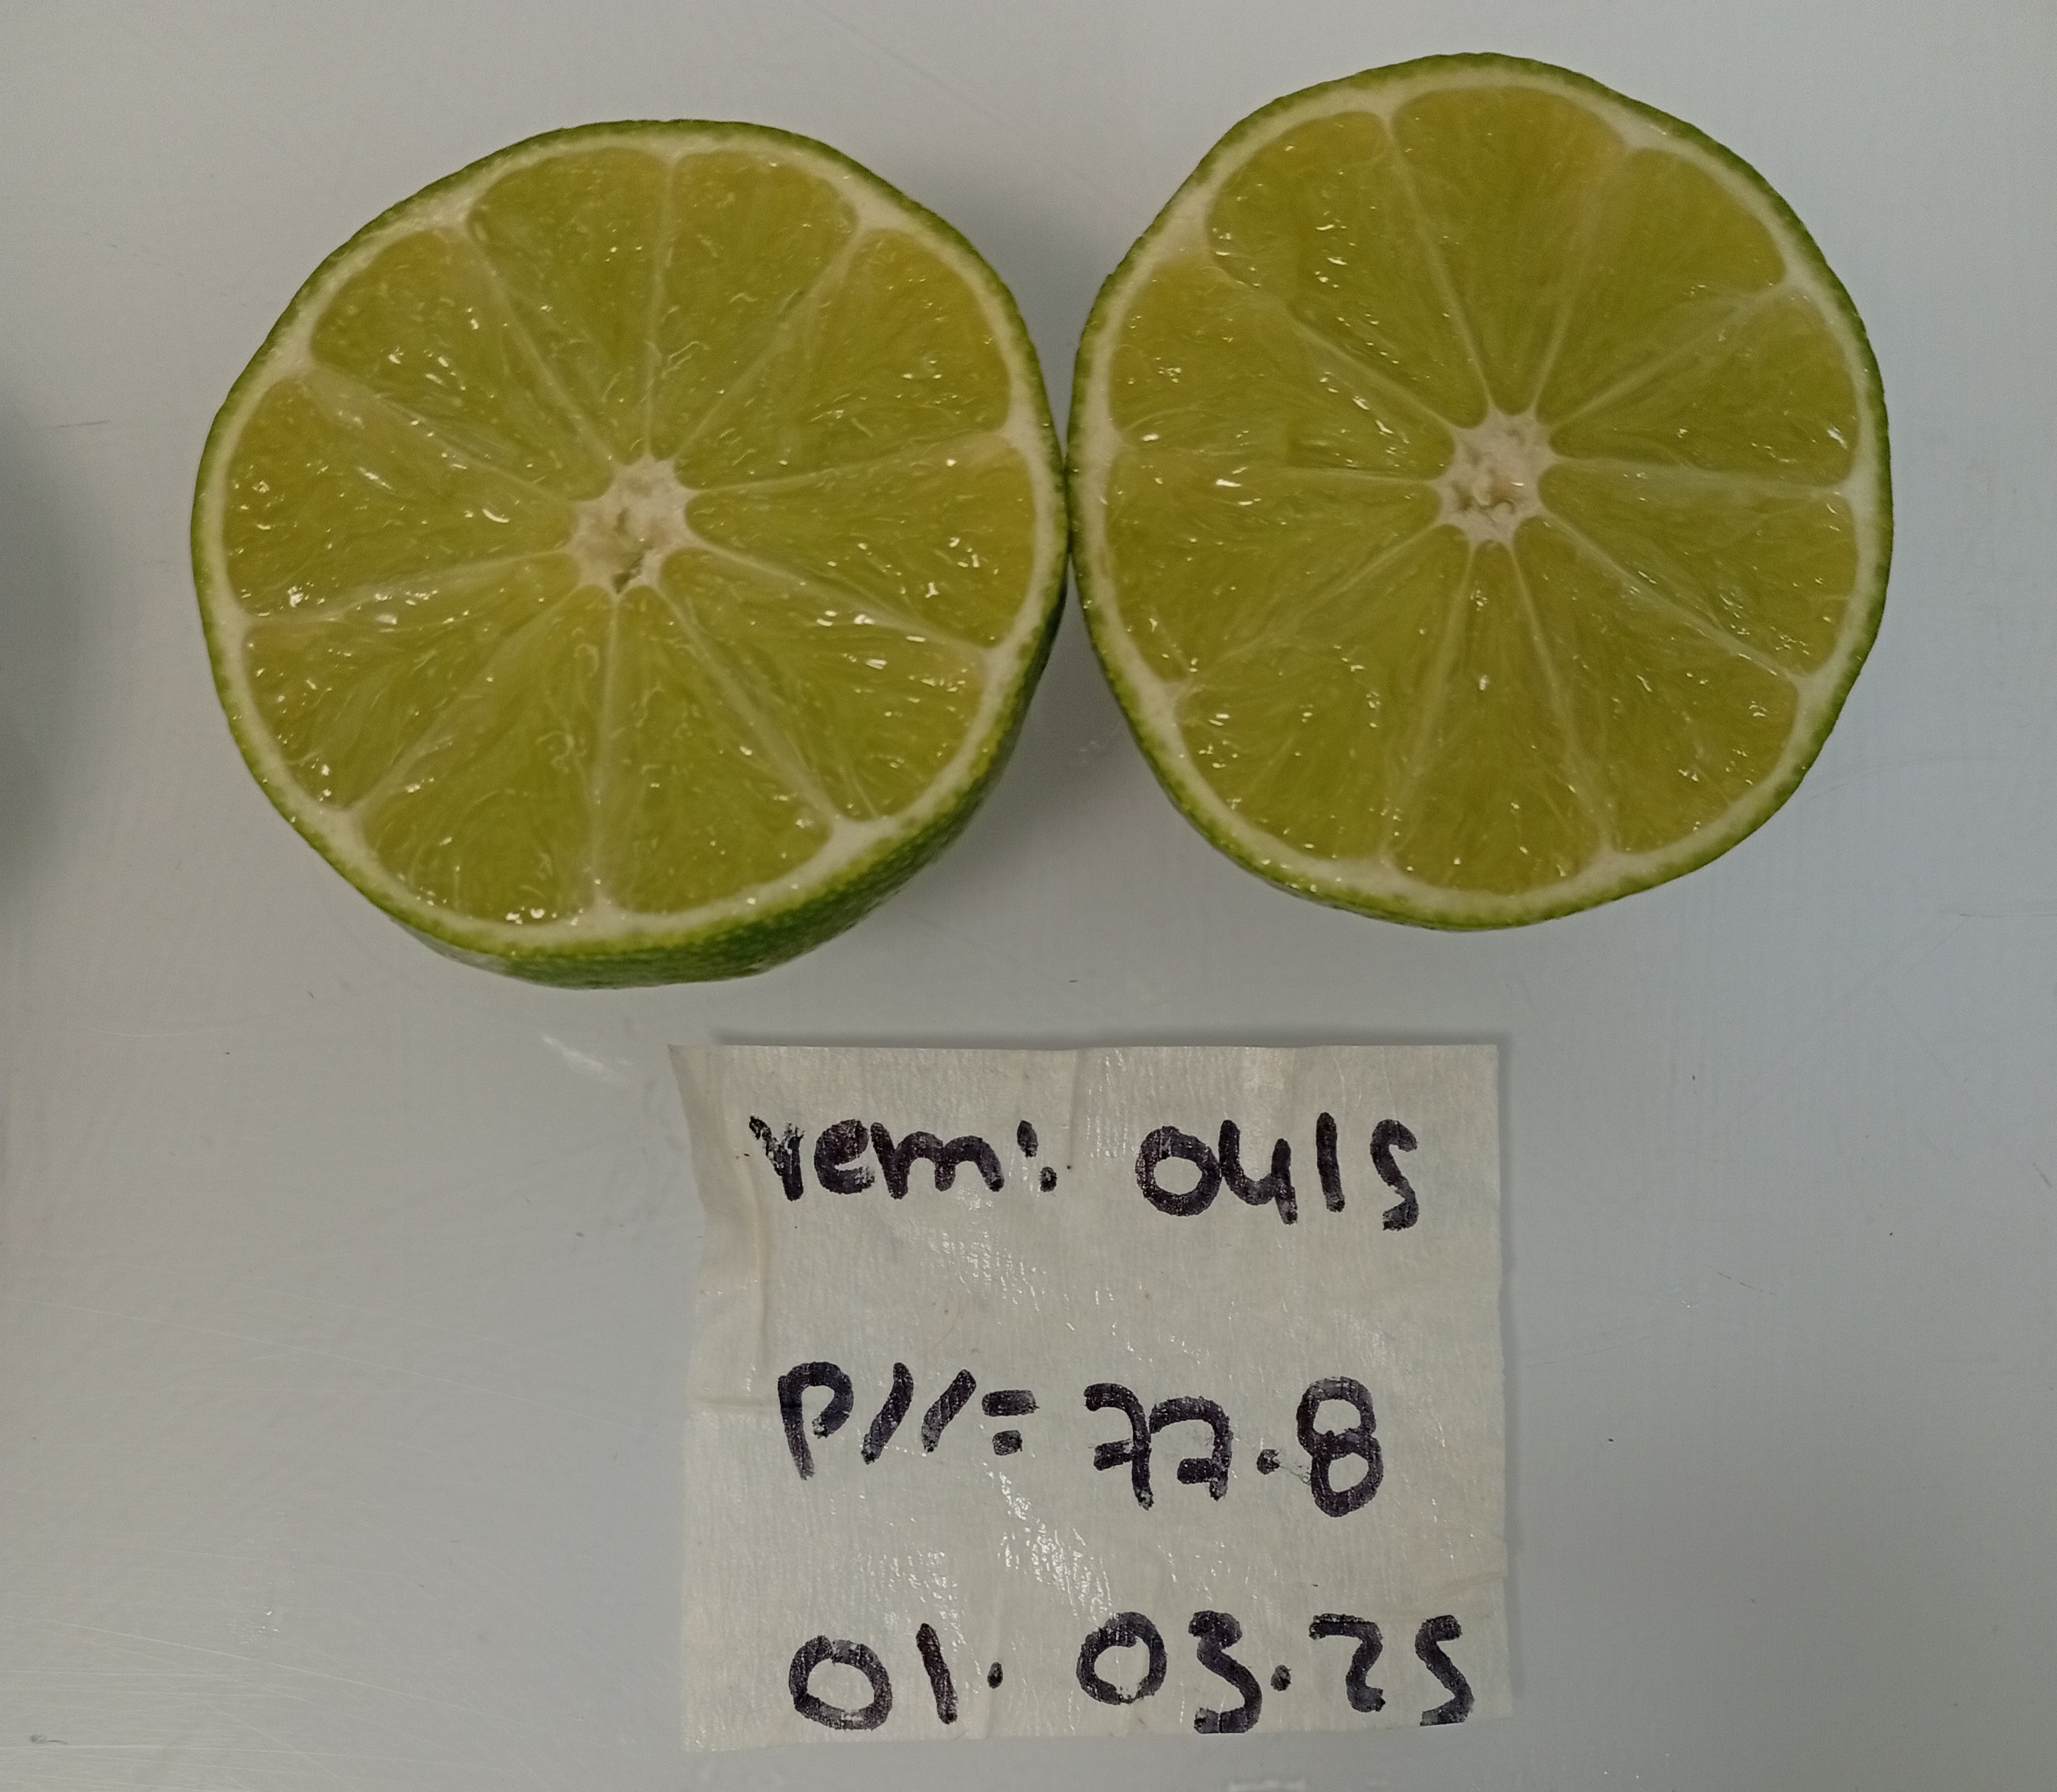 rem: 0415
P//= 77.8
01. 03.25